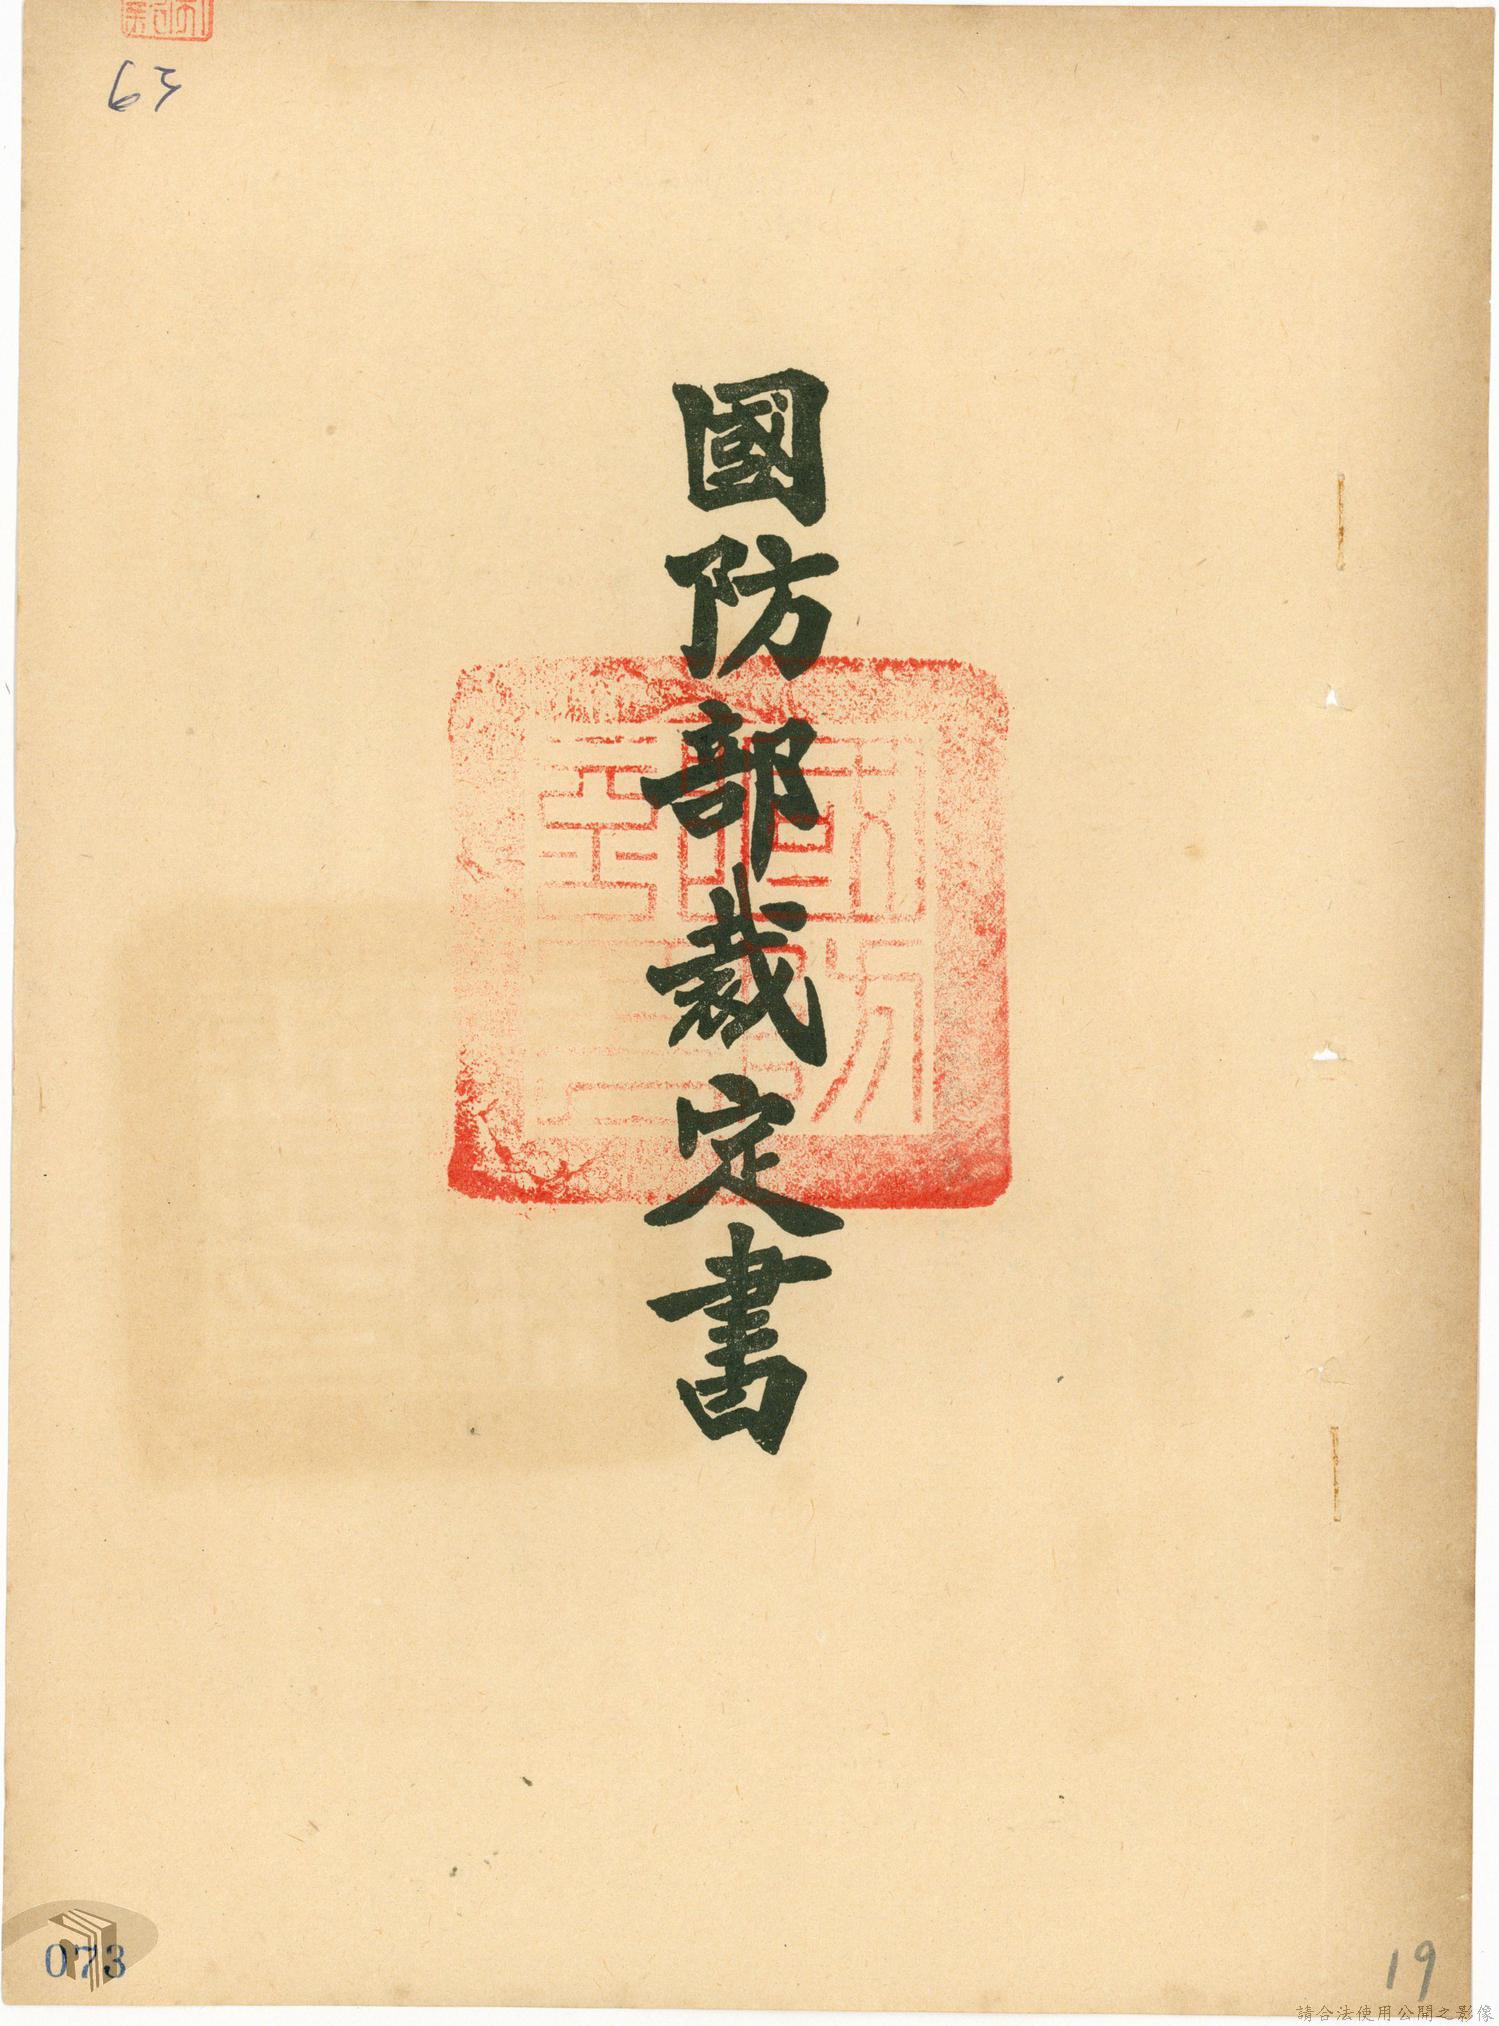 63
國防部裁定書
073
19
請合法使用公開之影像